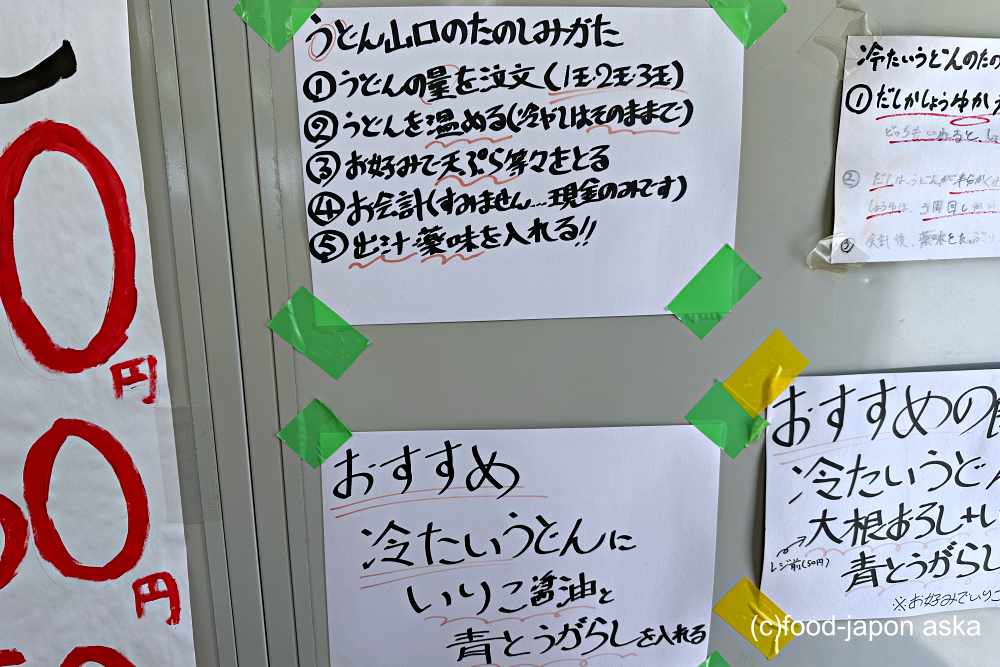 うどん山口のたのしみかた
①うどんの量を注文(1玉・2玉・3玉)
②うどんを温める(冷やしはそのままで)
③お好みで天ぷら等々をとる
④お会計(すみません…現金のみです)
⑤出汁薬味を入れる!!
冷たいうどんのたの
①だしかしょうゆか
おすすめ
冷たいうどんに
いりこ醤油と
青とうがらしを入れる
おすすめの
冷たいうどん
大根おろし+い
レジ前(50円)
青とうがらし
※お好みでいりこ
0円
0円
(c)food-japon aska